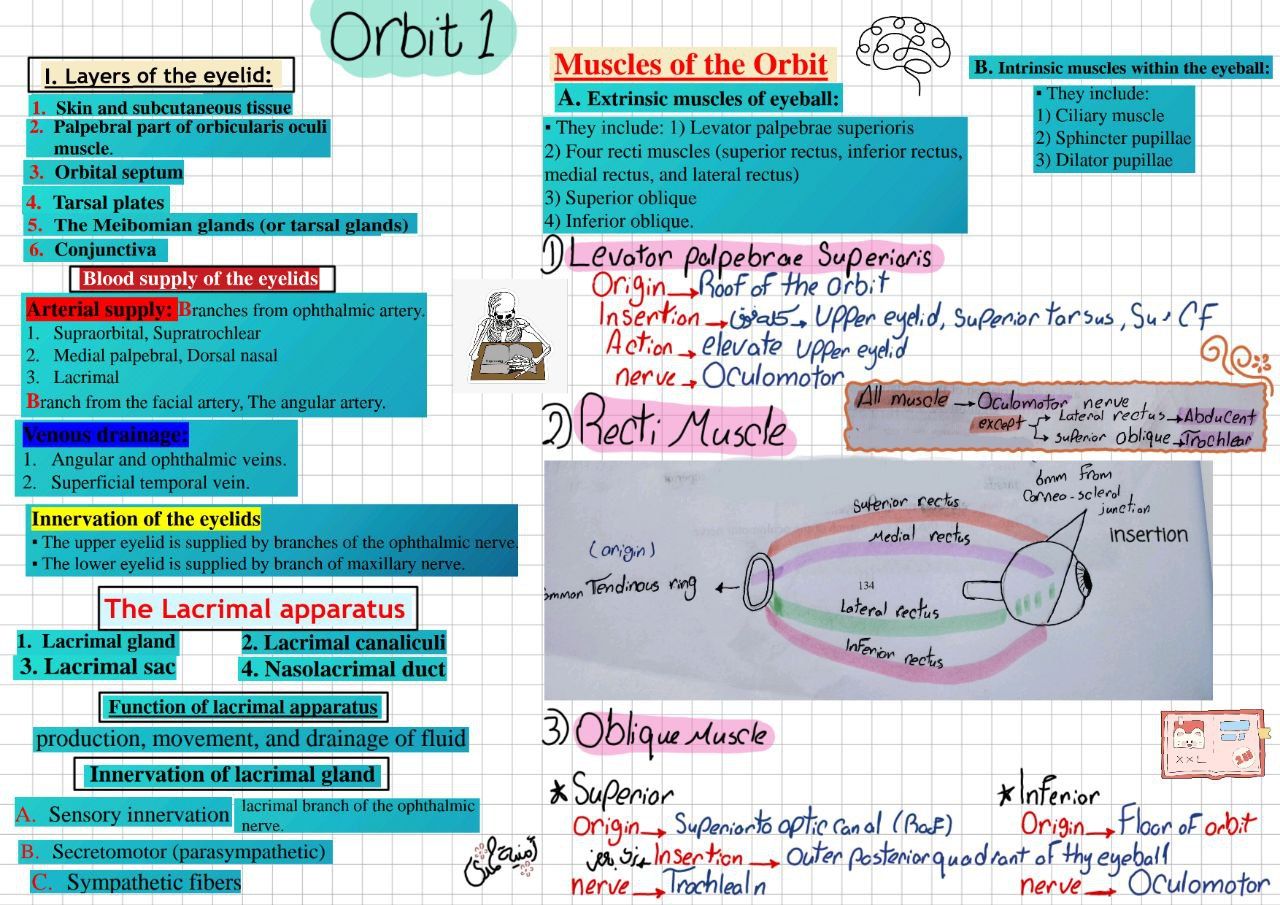 Orbit 1
I. Layers of the eyelid:
1. Skin and subcutaneous tissue
2. Palpebral part of orbicularis oculi
muscle.
3. Orbital septum
4. Tarsal plates
5. The Meibomian glands (or tarsal glands)
6. Conjunctiva
Blood supply of the eyelids
Arterial supply: Branches from ophthalmic artery.
1. Supraorbital, Supratrochlear
2. Medial palpebral, Dorsal nasal
3. Lacrimal
Branch from the facial artery, The angular artery.
Venous drainage:
1. Angular and ophthalmic veins.
2. Superficial temporal vein.
Innervation of the eyelids
▪ The upper eyelid is supplied by branches of the ophthalmic nerve.
▪ The lower eyelid is supplied by branch of maxillary nerve.
The Lacrimal apparatus
1. Lacrimal gland
2. Lacrimal canaliculi
3. Lacrimal sac
4. Nasolacrimal duct
Function of lacrimal apparatus
production, movement, and drainage of fluid
Innervation of lacrimal gland
A. Sensory innervation
lacrimal branch of the ophthalmic
nerve.
B. Secretomotor (parasympathetic)
C. Sympathetic fibers
Muscles of the Orbit
A. Extrinsic muscles of eyeball:
▪ They include: 1) Levator palpebrae superioris
2) Four recti muscles (superior rectus, inferior rectus,
medial rectus, and lateral rectus)
3) Superior oblique
4) Inferior oblique.
B. Intrinsic muscles within the eyeball:
▪ They include:
1) Ciliary muscle
2) Sphincter pupillae
3) Dilator pupillae
1) Levator palpebrae Superioris
Origin → Roof of the orbit
Insertion → Upper eyelid, Superior tarsus, Su. CF
Action → elevate upper eyelid
nerve → Oculomotor
All muscle → Oculomotor nerve
except → Lateral rectus → Abducent
→ Superior oblique → Trochlear
2) Recti Muscle
Superior rectus
Medial rectus
134
Lateral rectus
Inferior rectus
(origin)
ommon Tendinous ring ←
6mm From
Corneo-scleral
junction
insertion
3) Oblique Muscle
* Superior
Origin → Superior to optic canal (Roof)
* Inferior
Origin → Floor of orbit
Insertion → Outer posterior quadrant of thy eyeball
nerve → Trochlealn
nerve → Oculomotor
XXL